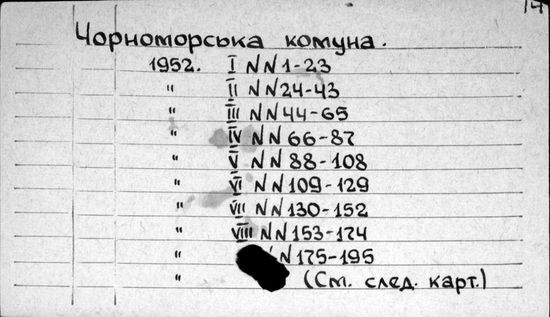 14
Чорноморська комуна.
1952. I NN 1-23
" II NN 24-43
" III NN 44-65
" IV NN 66-87
" V NN 88-108
" VI NN 109-129
" VII NN 130-152
" VIII NN 153-174
" N 175-195
" (См. след. карт.)